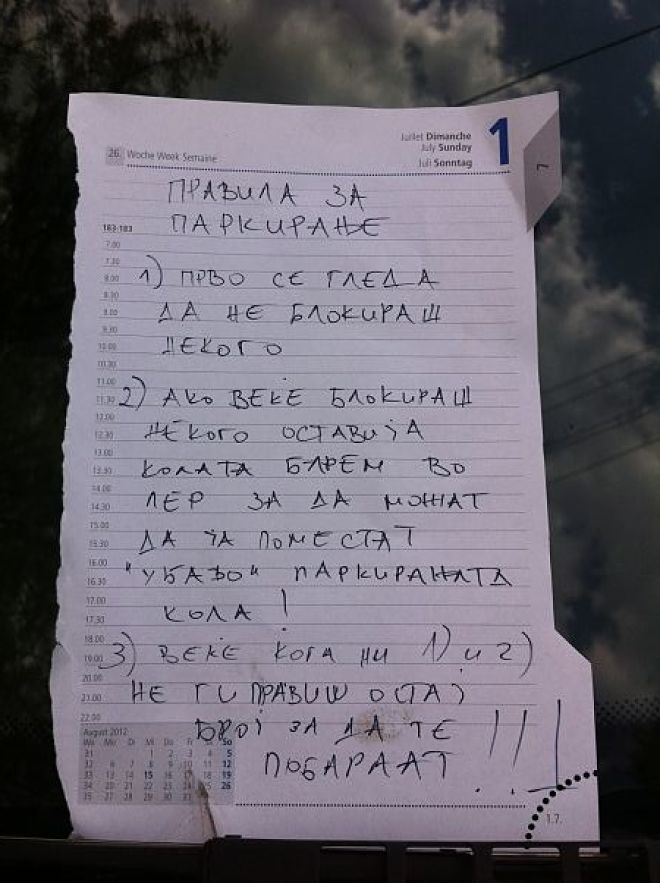 Juillet Dimanche
July Sunday
Juli Sonntag
1
26 Woche Week Semaine
7
ПРАВИЛА ЗА
ПАРКИРАЊЕ
183-183
7.00
7.30
8.00
8.30
9.00
9.30
10.00
10.30
11.00
11.30
12.00
12.30
13.00
13.30
14.00
14.30
15.00
15.30
16.00
16.30
17.00
17.30
18.00
19.00
20.00
21.00
22.00
1) ПРВО СЕ ГЛЕДА
ДА НЕ БЛОКИРАШ
НЕКОГО
2) АКО ВЕЌЕ БЛОКИРАШ
НЕКОГО ОСТАВИ ЈА
КОЛАТА БАРЕМ ВО
ЛЕР ЗА ДА МОЖАТ
ДА ЈА ПОМЕСТАТ
"УБАВО" ПАРКИРАНАТА
КОЛА!
3) ВЕЌЕ КОГА НИ 1) И 2)
НЕ ГИ ПРАВИШ ОСТАЈ
БРОЈ ЗА ДА ТЕ
ПОБАРААТ !!!
August 2012
Wo Mo Di Mi Do Fr Sa So
31 1 2 3 4 5
32 6 7 8 9 10 11 12
33 13 14 15 16 17 18 19
34 20 21 22 23 24 25 26
35 27 28 29 30 31
1.7.